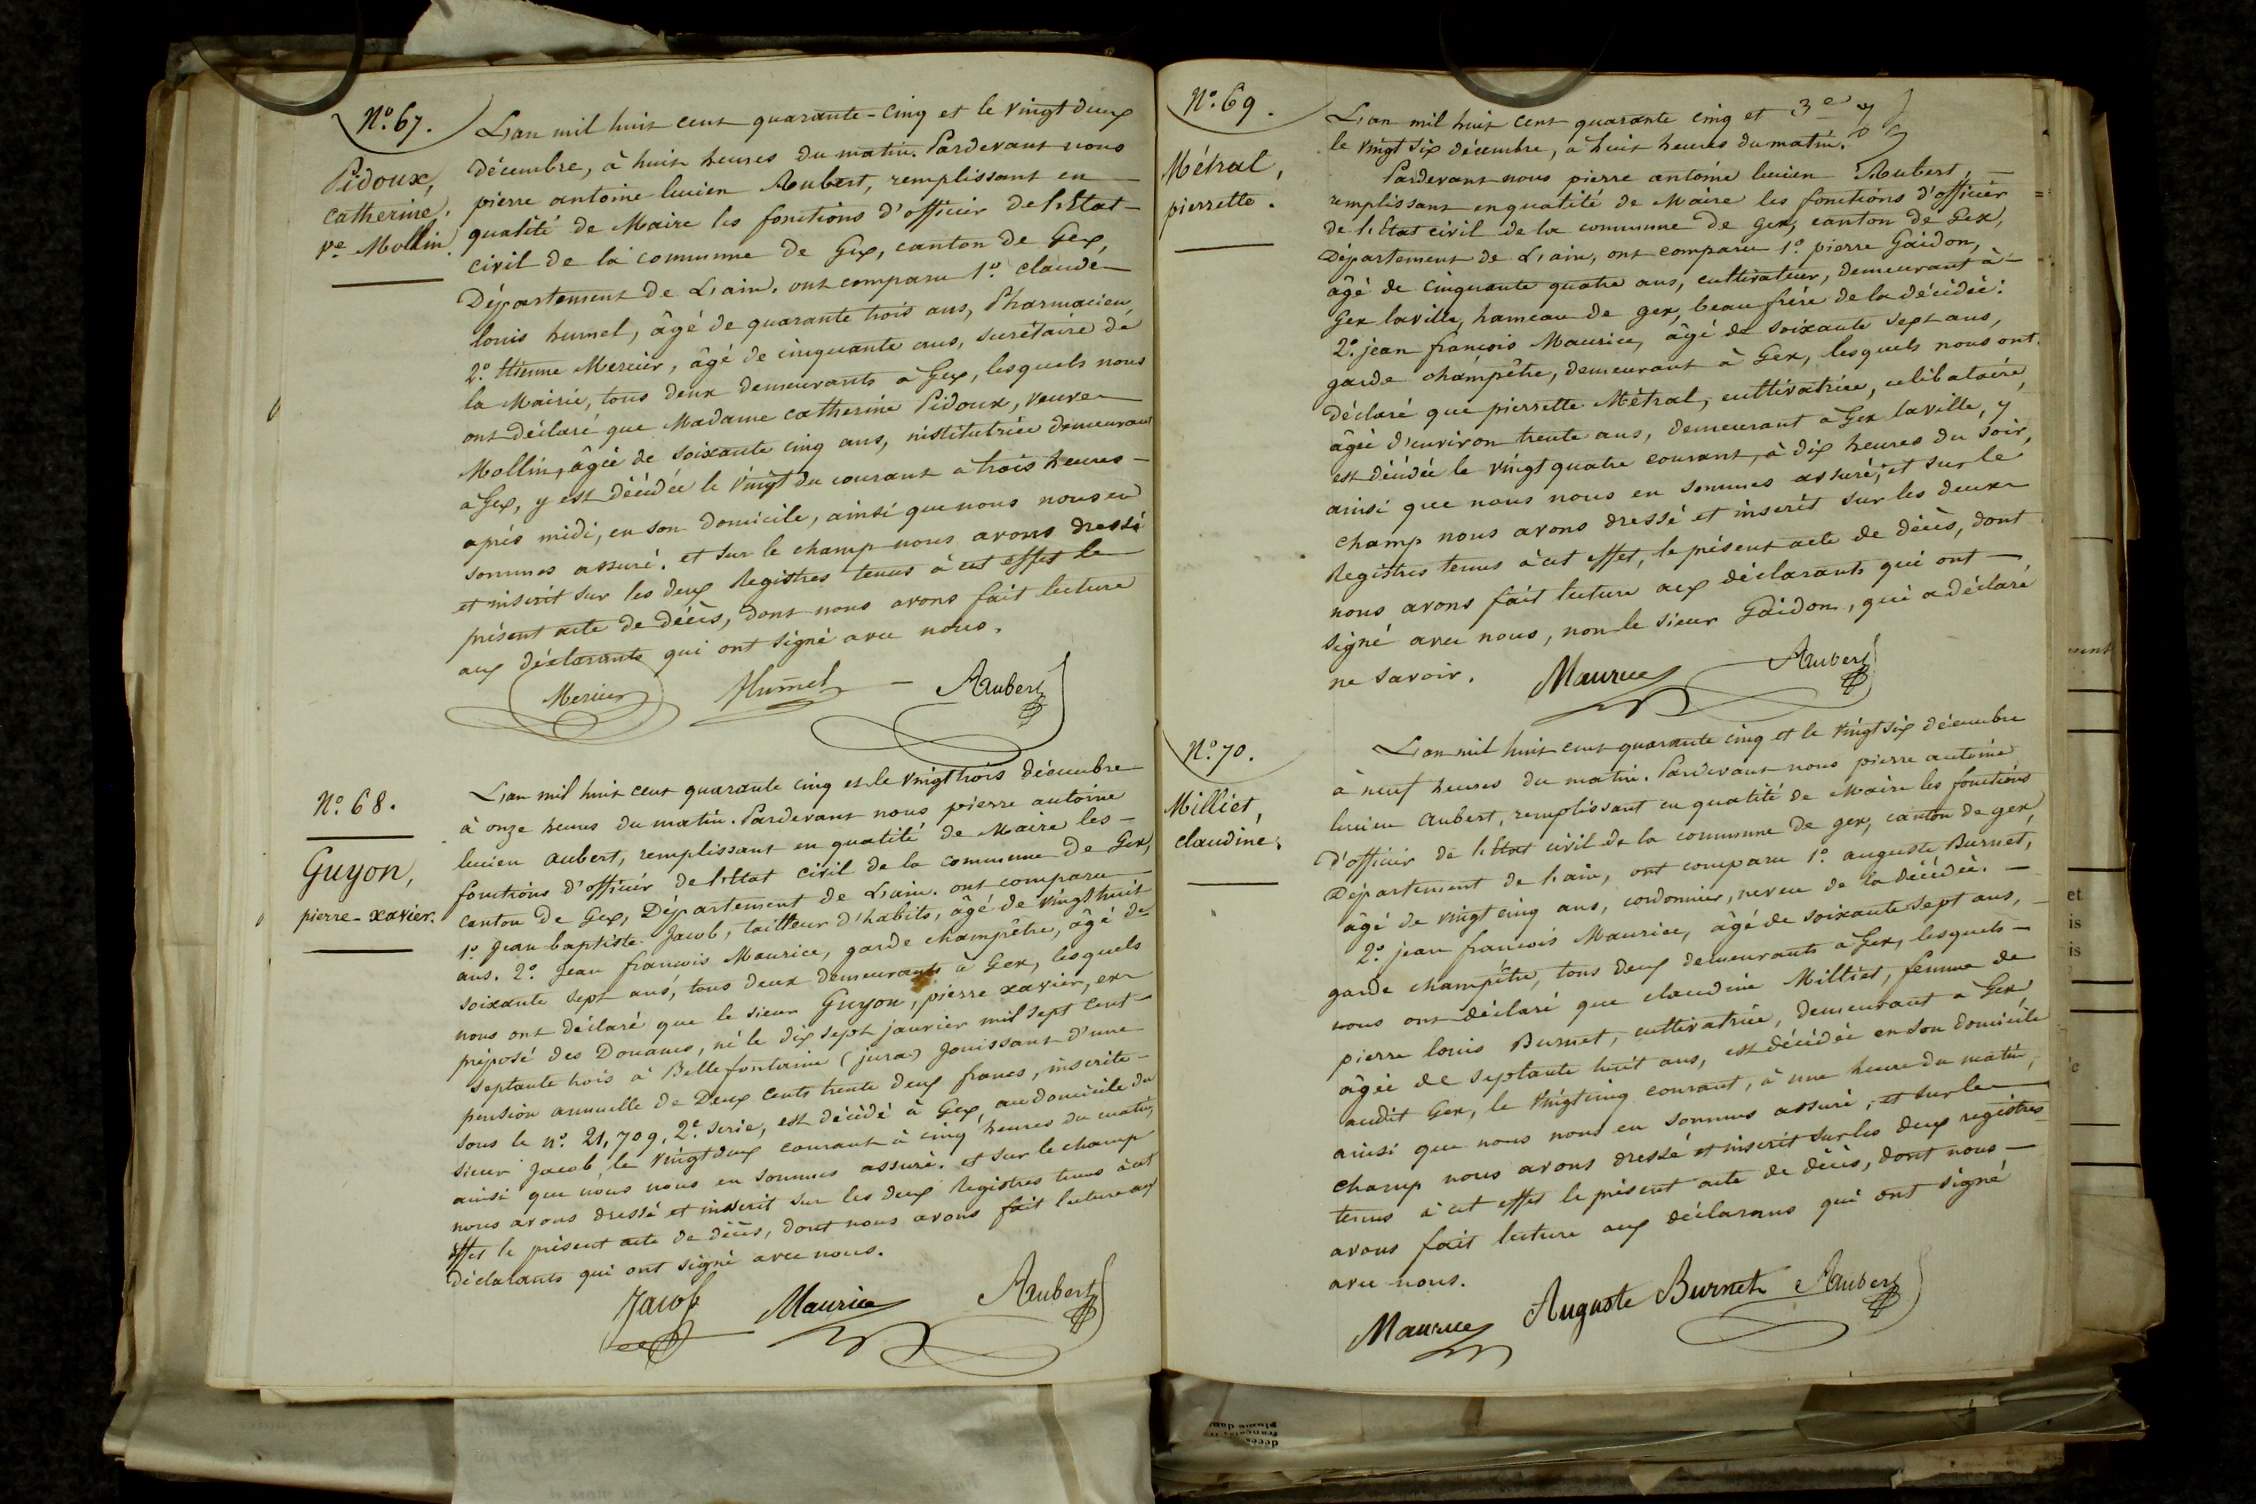 N.º 67.
Pidoux,
catherine,
v.e Mollin.
L'an mil huit cent quarante-cinq et le vingt deux
décembre, à huit heures du matin. Pardevant nous
pierre antoine lucien Aubert, remplissant en
qualité de Maire les fonctions d'officier de l'Etat
civil de la commune de Gex, canton de Gex,
Département de L'ain. ont comparu 1.º claude
louis humel, âgé de quarante trois ans, Pharmacien,
2.º Etienne Mercier, âgé de cinquante ans, secrétaire de
la Mairie, tous deux demeurants à Gex, lesquels nous
ont déclaré que Madame catherine Pidoux, veuve
Mollin, âgée de soixante cinq ans, institutrice demeurant
à Gex, y est décédée le vingt du courant à trois heures
après midi, en son domicile, ainsi que nous nous en
sommes assuré. et sur le champ nous avons dressé
et inscrit sur les deux Registres tenus à cet effet le
présent acte de décès, dont nous avons fait lecture
aux déclarants qui ont signé avec nous.
Mercier Humel Aubert
N.º 68.
Guyon,
pierre-xavier.
L'an mil huit cent quarante cinq et le vingt trois décembre
à onze heures du matin. Pardevant nous pierre antoine
lucien aubert, remplissant en qualité de Maire les
fonctions d'officier de l'Etat civil de la commune de Gex,
canton de Gex, Département de L'ain. ont comparu
1.º Jean baptiste Jacob, tailleur d'habits, âgé de vingt huit
ans. 2.º Jean françois Maurice, garde champêtre, âgé de
soixante sept ans, tous deux demeurants à Gex, lesquels
nous ont déclaré que le sieur Guyon, pierre xavier, ex
préposé des Douanes, né le dix sept janvier mil sept cent
septante trois à Bellefontaine (jura) Jouissant d'une
pension annuelle de Deux cents trente deux francs, inscrite
sous le n.º 21,709, 2.e serie, est décédé à Gex, au domicile du
sieur Jacob le vingt deux courant à cinq heures du matin,
ainsi que nous nous en sommes assuré. et sur le champ
nous avons dressé et inscrit sur les deux Registres tenus à cet
effet le présent acte de décès, dont nous avons fait lecture aux
déclarants qui ont signé avec nous.
Jacob Maurice Aubert
N.º 69.
Métral,
pierrette.
L'an mil huit cent quarante cinq et 3e
le vingt six décembre, à huit heures du matin.
Pardevant nous pierre antoine lucien Aubert,
remplissant en qualité de Maire les fonctions d'officier
de l'Etat civil de la commune de Gex, canton de Gex,
Département de L'ain, ont comparu 1.º pierre Gaidon,
âgé de cinquante quatre ans, cultivateur, demeurant à
Gex laville, hameau de gex, beau frère de la décédée:
2.º jean françois Maurice, âgé de soixante sept ans,
garde champêtre, demeurant à Gex, lesquels nous ont
déclaré que pierrette Métral, cultivatrice, celibataire,
âgée d'environ trente ans, demeurant à Gex laville, y
est décédée le vingt quatre courant, à dix heures du soir,
ainsi que nous nous en sommes assuré, et sur le
champ nous avons dressé et inscrit sur les deux
Registres tenus à cet effet, le présent acte de décès, dont
nous avons fait lecture aux déclarants qui ont
signé avec nous, non le sieur Gaidon, qui a déclaré
ne savoir.
Maurice Aubert
N.º 70.
Milliet,
claudine.
L'an mil huit cent quarante cinq et le vingt six décembre
à neuf heures du matin. Pardevant nous pierre antoine
lucien aubert, remplissant en qualité de Maire les fonctions
d'officier de l'Etat civil de la commune de gex, canton de gex,
Département de L'ain, ont comparu 1.º auguste Burnet,
âgé de vingt cinq ans, cordonnier, neveu de la décédée.
2.º jean françois Maurice, âgé de soixante sept ans,
garde champêtre, tous deux demeurants à Gex, lesquels
nous ont déclaré que claudine Milliet, femme de
pierre louis Burnet, cultivatrice, demeurant à Gex
âgée de septante huit ans, est décédée en son domicile
audit Gex, le vingt cinq courant, à une heure du matin,
ainsi que nous nous en sommes assuré, et sur le
champ nous avons dressé et inscrit sur les deux registres
tenus à cet effet le présent acte de décès, dont nous
avons fait lecture aux déclarans qui ont signé
avec nous.
Maurice Auguste Burnet Aubert
et
is
is